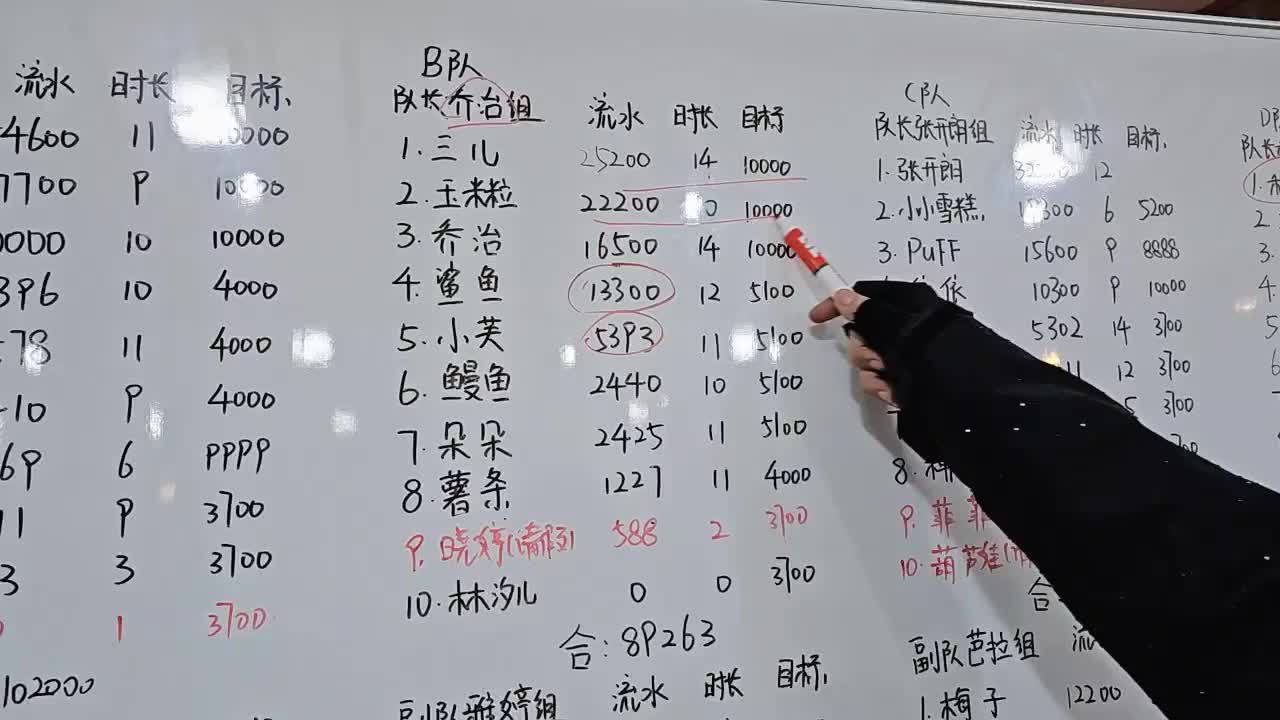 流水 时长 目标
4600 11 10000
7700 9 10000
0000 10 10000
396 10 4000
78 11 4000
10 9 4000
69 6 9999
11 9 3700
3 3 3700
1 3700
102000
B队
队长乔治组 流水 时长 目标
1.三儿 25200 14 10000
2.玉米粒 22200 10 10000
3.乔治 16500 14 10000
4.鲨鱼 13300 12 5100
5.小芙 5393 11 5100
6.鳗鱼 2440 10 5100
7.朵朵 2425 11 5100
8.薯条 1227 11 4000
9.晓婷(请假) 588 2 3700
10.林汐儿 0 0 3700
合:89263
副队雅婷组 流水 时长 目标
C队
队长张开朗组 流水 时长 目标
1.张开朗 12
2.小小雪糕 300 6 5200
3.PUFF 15600 9 8888
依 10300 9 10000
5302 14 3700
12 3700
3700
8.
9.菲
10.葫芦娃(
合
副队芭拉组
1.梅子 12200
队长
1.
2.
3.
4.